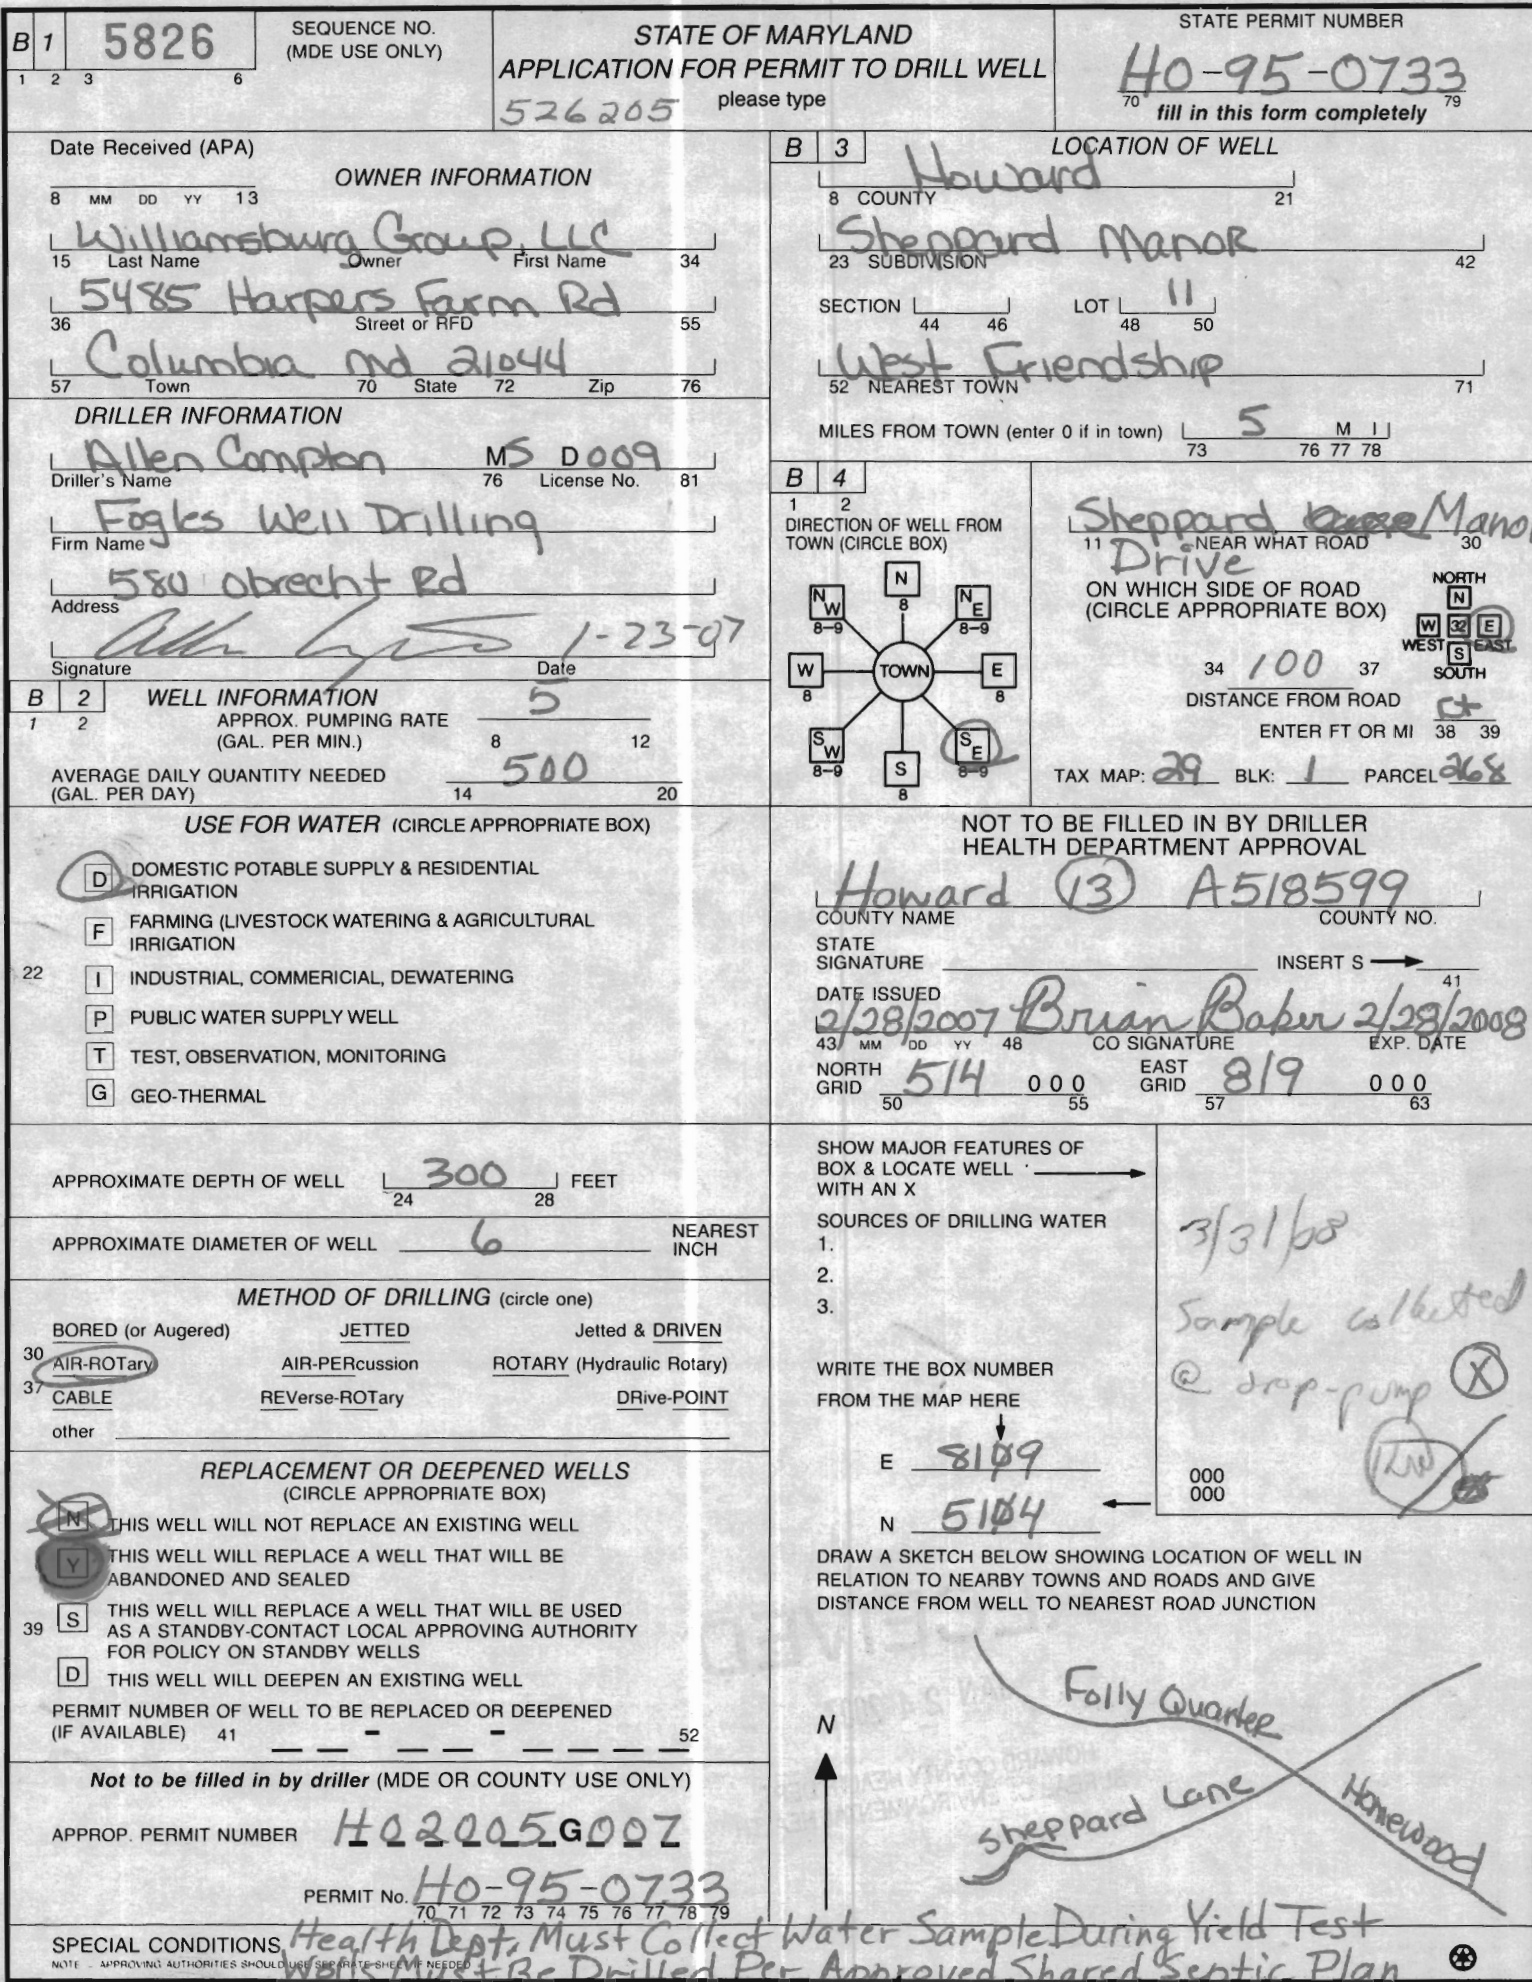 B 1 5826
1 2 3 6
SEQUENCE NO.
(MDE USE ONLY)
STATE OF MARYLAND
APPLICATION FOR PERMIT TO DRILL WELL
526205 please type
STATE PERMIT NUMBER
HO-95-0733
70 79
fill in this form completely
Date Received (APA)
8 MM DD YY 13
OWNER INFORMATION
Williamsburg Group, LLC
15 Last Name Owner First Name 34
5485 Harpers Farm Rd
36 Street or RFD 55
Columbia md 21044
57 Town 70 State 72 Zip 76
DRILLER INFORMATION
Allen Compton MS D009
Driller's Name 76 License No. 81
Fogles Well Drilling
Firm Name
580 Obrecht Rd
Address
1-23-07
Signature Date
B 2 WELL INFORMATION
1 2
APPROX. PUMPING RATE 5
(GAL. PER MIN.) 8 12
AVERAGE DAILY QUANTITY NEEDED 500
(GAL. PER DAY) 14 20
USE FOR WATER (CIRCLE APPROPRIATE BOX)
D DOMESTIC POTABLE SUPPLY & RESIDENTIAL
IRRIGATION
F FARMING (LIVESTOCK WATERING & AGRICULTURAL
IRRIGATION
22 I INDUSTRIAL, COMMERICIAL, DEWATERING
P PUBLIC WATER SUPPLY WELL
T TEST, OBSERVATION, MONITORING
G GEO-THERMAL
APPROXIMATE DEPTH OF WELL 300 FEET
24 28
APPROXIMATE DIAMETER OF WELL 6 NEAREST
INCH
METHOD OF DRILLING (circle one)
BORED (or Augered) JETTED Jetted & DRIVEN
30 AIR-ROTary AIR-PERcussion ROTARY (Hydraulic Rotary)
37 CABLE REVerse-ROTary DRive-POINT
other
REPLACEMENT OR DEEPENED WELLS
(CIRCLE APPROPRIATE BOX)
N THIS WELL WILL NOT REPLACE AN EXISTING WELL
Y THIS WELL WILL REPLACE A WELL THAT WILL BE
ABANDONED AND SEALED
39 S THIS WELL WILL REPLACE A WELL THAT WILL BE USED
AS A STANDBY-CONTACT LOCAL APPROVING AUTHORITY
FOR POLICY ON STANDBY WELLS
D THIS WELL WILL DEEPEN AN EXISTING WELL
PERMIT NUMBER OF WELL TO BE REPLACED OR DEEPENED
(IF AVAILABLE) 41 - - 52
Not to be filled in by driller (MDE OR COUNTY USE ONLY)
APPROP. PERMIT NUMBER HO2005G007
PERMIT No. HO-95-0733
70 71 72 73 74 75 76 77 78 79
B 3 LOCATION OF WELL
Howard
8 COUNTY 21
Sheppard Manor
23 SUBDIVISION 42
SECTION LOT 11
44 46 48 50
West Friendship
52 NEAREST TOWN 71
MILES FROM TOWN (enter 0 if in town) 5 M I
73 76 77 78
B 4
1 2
DIRECTION OF WELL FROM
TOWN (CIRCLE BOX)
N
8
NW NE
8-9 8-9
W TOWN E
8 8
SW SE
8-9 8-9
S
8
Sheppard Manor
11 NEAR WHAT ROAD 30
Drive
ON WHICH SIDE OF ROAD
(CIRCLE APPROPRIATE BOX)
NORTH
N
W 32 E
WEST EAST
S
SOUTH
34 100 37
DISTANCE FROM ROAD
ENTER FT OR MI ft
38 39
TAX MAP: 29 BLK: 1 PARCEL 268
NOT TO BE FILLED IN BY DRILLER
HEALTH DEPARTMENT APPROVAL
Howard 13 A518599
COUNTY NAME COUNTY NO.
STATE
SIGNATURE INSERT S
41
DATE ISSUED
2/28/2007 Brian Baker 2/28/2008
43 MM DD YY 48 CO SIGNATURE EXP. DATE
NORTH GRID 514 000 EAST GRID 819 000
50 55 57 63
SHOW MAJOR FEATURES OF
BOX & LOCATE WELL
WITH AN X
SOURCES OF DRILLING WATER
1.
2.
3.
3/31/08
Sample collected
@ drop-pump X
WRITE THE BOX NUMBER
FROM THE MAP HERE
E 8109
N 5104
000
000
DRAW A SKETCH BELOW SHOWING LOCATION OF WELL IN
RELATION TO NEARBY TOWNS AND ROADS AND GIVE
DISTANCE FROM WELL TO NEAREST ROAD JUNCTION
N
Folly Quarter
Sheppard Lane
Homewood
SPECIAL CONDITIONS Health Dept. Must Collect Water Sample During Yield Test
NOTE - APPROVING AUTHORITIES SHOULD USE SEPARATE SHEET IF NEEDED
Wells Must Be Drilled Per Approved Shared Septic Plan